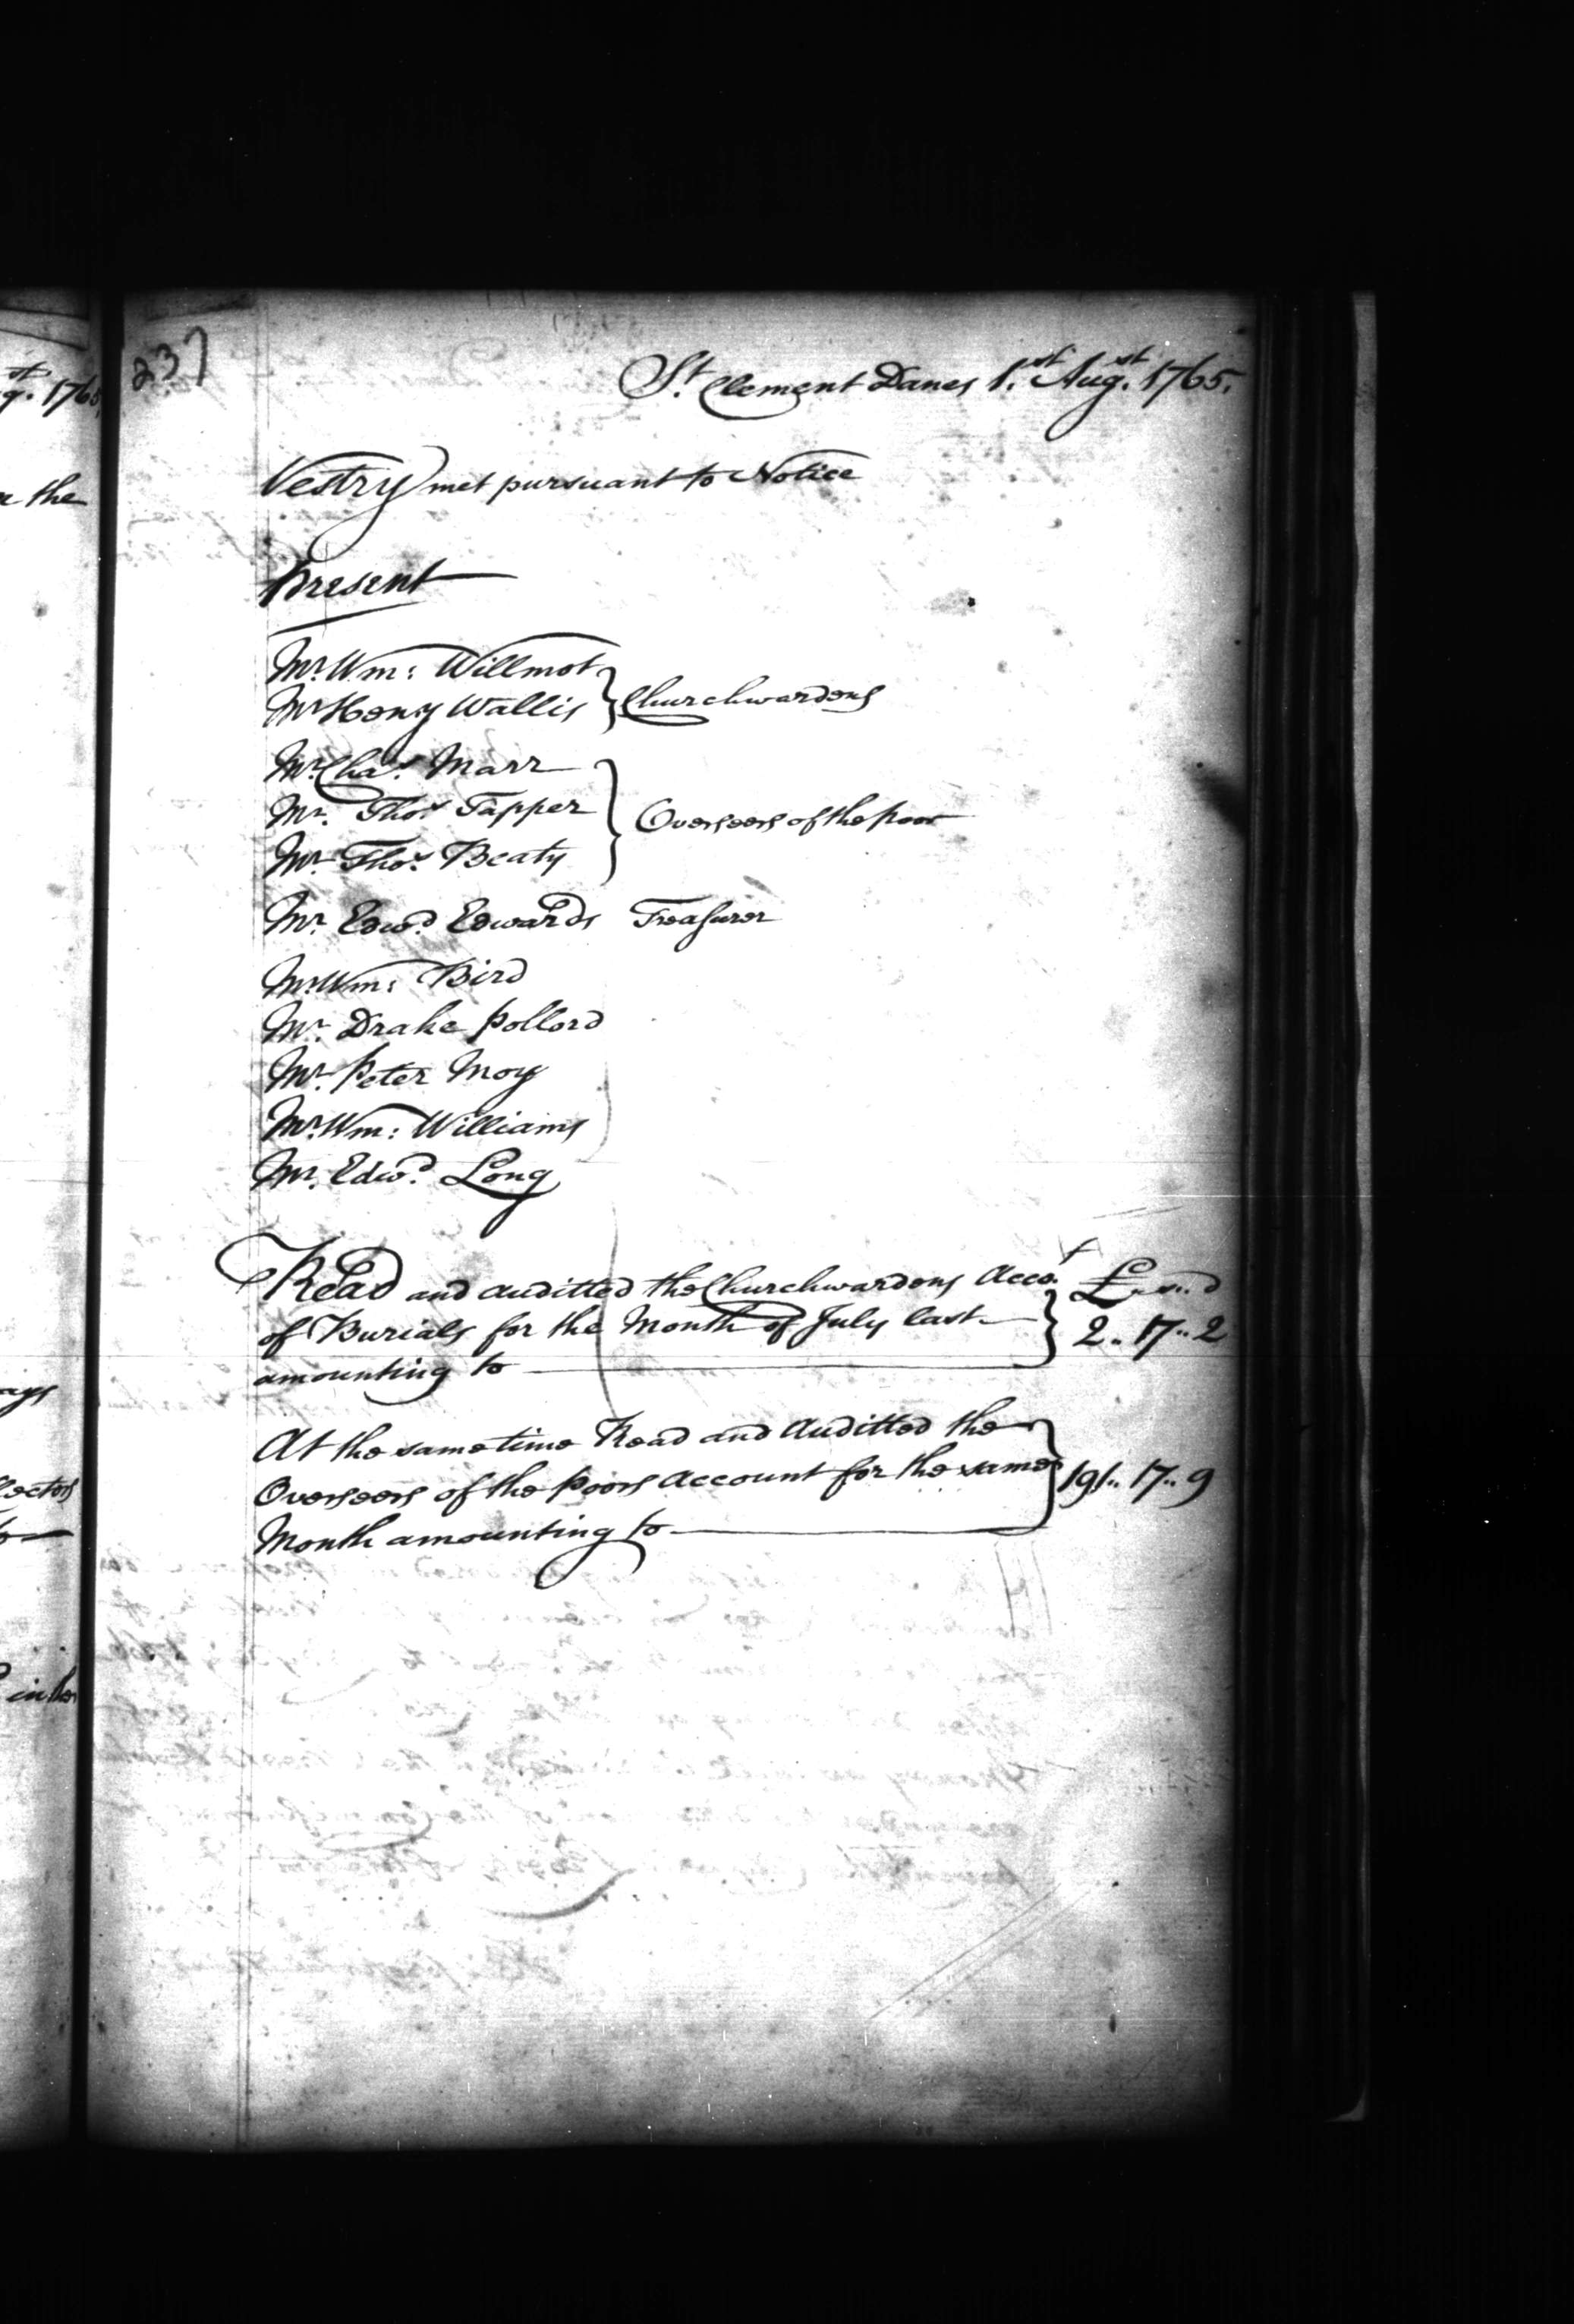 237
St. Clement Danes 1.st Aug.st 1765.
Vestry met pursuant to Notice
Present
Mr. Wm: Willmot
Mr Heny Wallis } Churchwardens
Mr. Chas. Marr
Mr. Thos Tapper } Overseers of the Poor
Mr. Thos. Beaty
Mr. Edwd. Edwards Treasurer
Mr. Wm: Bird
Mr. Drake Pollard
Mr. Peter Moy
Mr. Wm: Williams
Mr. Edwd. Long
Read and auditted the Churchwardens Acco.t £ .. s .. d
of Burials for the Month of July last } 2 .. 17 .. 2
amounting to
At the same time Read and Auditted the
Overseers of the Poors Account for the same } 191 .. 17 .. 9
Month amounting to